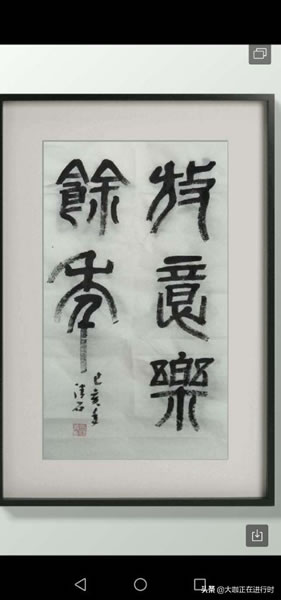 放意樂
餘年
己亥年
石
头条 @大咖正在进行时